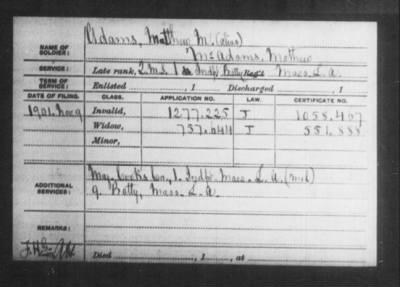 NAME OF SOLDIER: Adams, Matthew M. (alias)
McAdams, Mathew
SERVICE: Late rank, Indpt Batty Reg't Mass. L. A.
TERM OF SERVICE: Enlisted , 1 Discharged , 1
DATE OF FILING. CLASS. APPLICATION NO. LAW. CERTIFICATE NO.
1901. Nov 9 Invalid, 1277.225 J 1058.407
Widow, 757.044 J 551.888
Minor,
ADDITIONAL SERVICES: Maj. Cook's Co., 1. Indpt. Mass. L. A. (mil)
9. Batty, Mass. L. A.
REMARKS:
Died , 1 , at